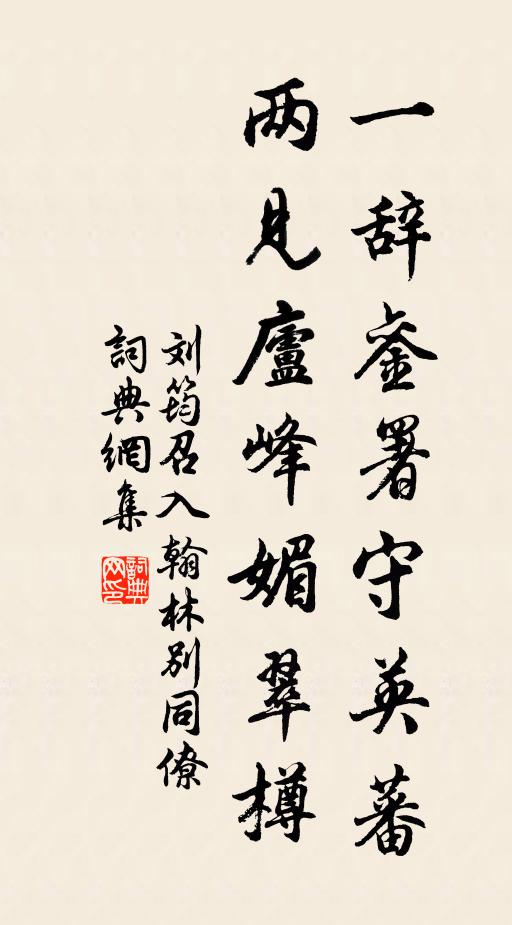 一辞銮署守英蕃
两见廬峰媚翠樽
刘筠召入翰林别同僚
詞典網集
詞典网印